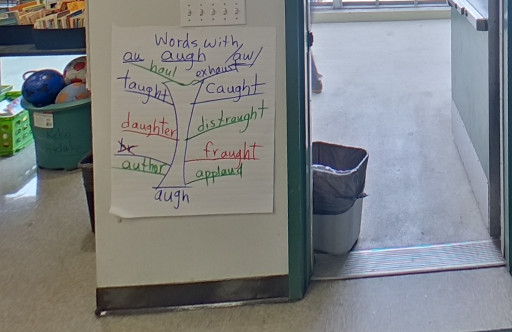 Words with
au augh /aw/
haul exhaust
taught caught
daughter distraught
br fraught
author applaud
augh